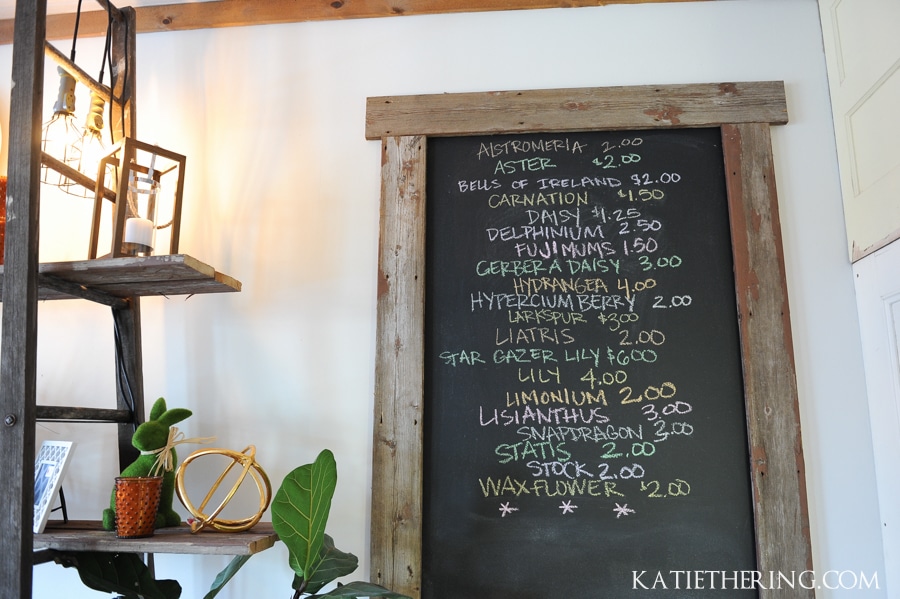 ALSTROMERIA 2.00
ASTER $2.00
BELLS OF IRELAND $2.00
CARNATION $1.50
DAISY $1.25
DELPHINIUM 2.50
FUJI MUMS 1.50
GERBERA DAISY 3.00
HYDRANGEA 4.00
HYPERCIUM BERRY 2.00
LARKSPUR $3.00
LIATRIS 2.00
STAR GAZER LILY $6.00
LILY 4.00
LIMONIUM 2.00
LISIANTHUS 3.00
SNAPDRAGON 2.00
STATIS 2.00
STOCK 2.00
WAXFLOWER $2.00
* * *
KATIETHERING.COM